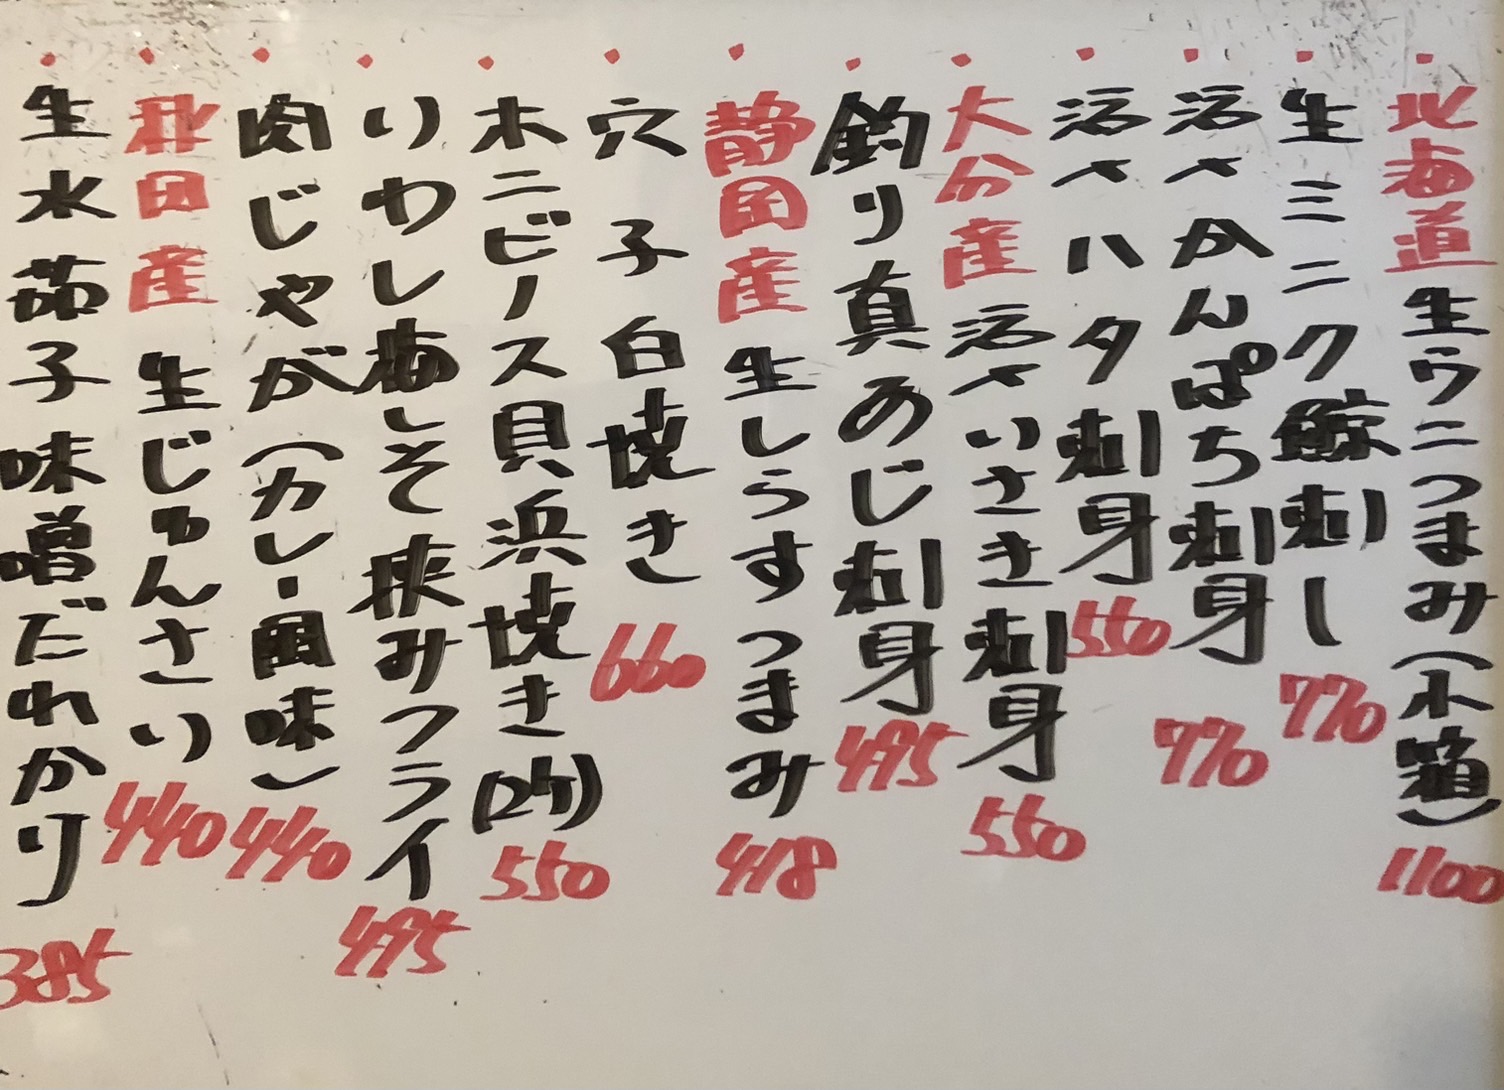 ・北海道生ウニつまみ(木箱)1100
・生ミニク鯨刺し770
・活〆かんぱち刺身770
・活〆ハタ刺身550
・大分産活〆いさき刺身550
・釣り真あじ刺身495
・静岡産生しらすつまみ418
・穴子白焼き660
・ホンビノス貝浜焼き(2ケ)550
・いわし梅しそ挟みフライ495
・肉じゃが(カレー風味)440
・秋田産生じゅんさい440
・生水茄子味噌だれかけ385